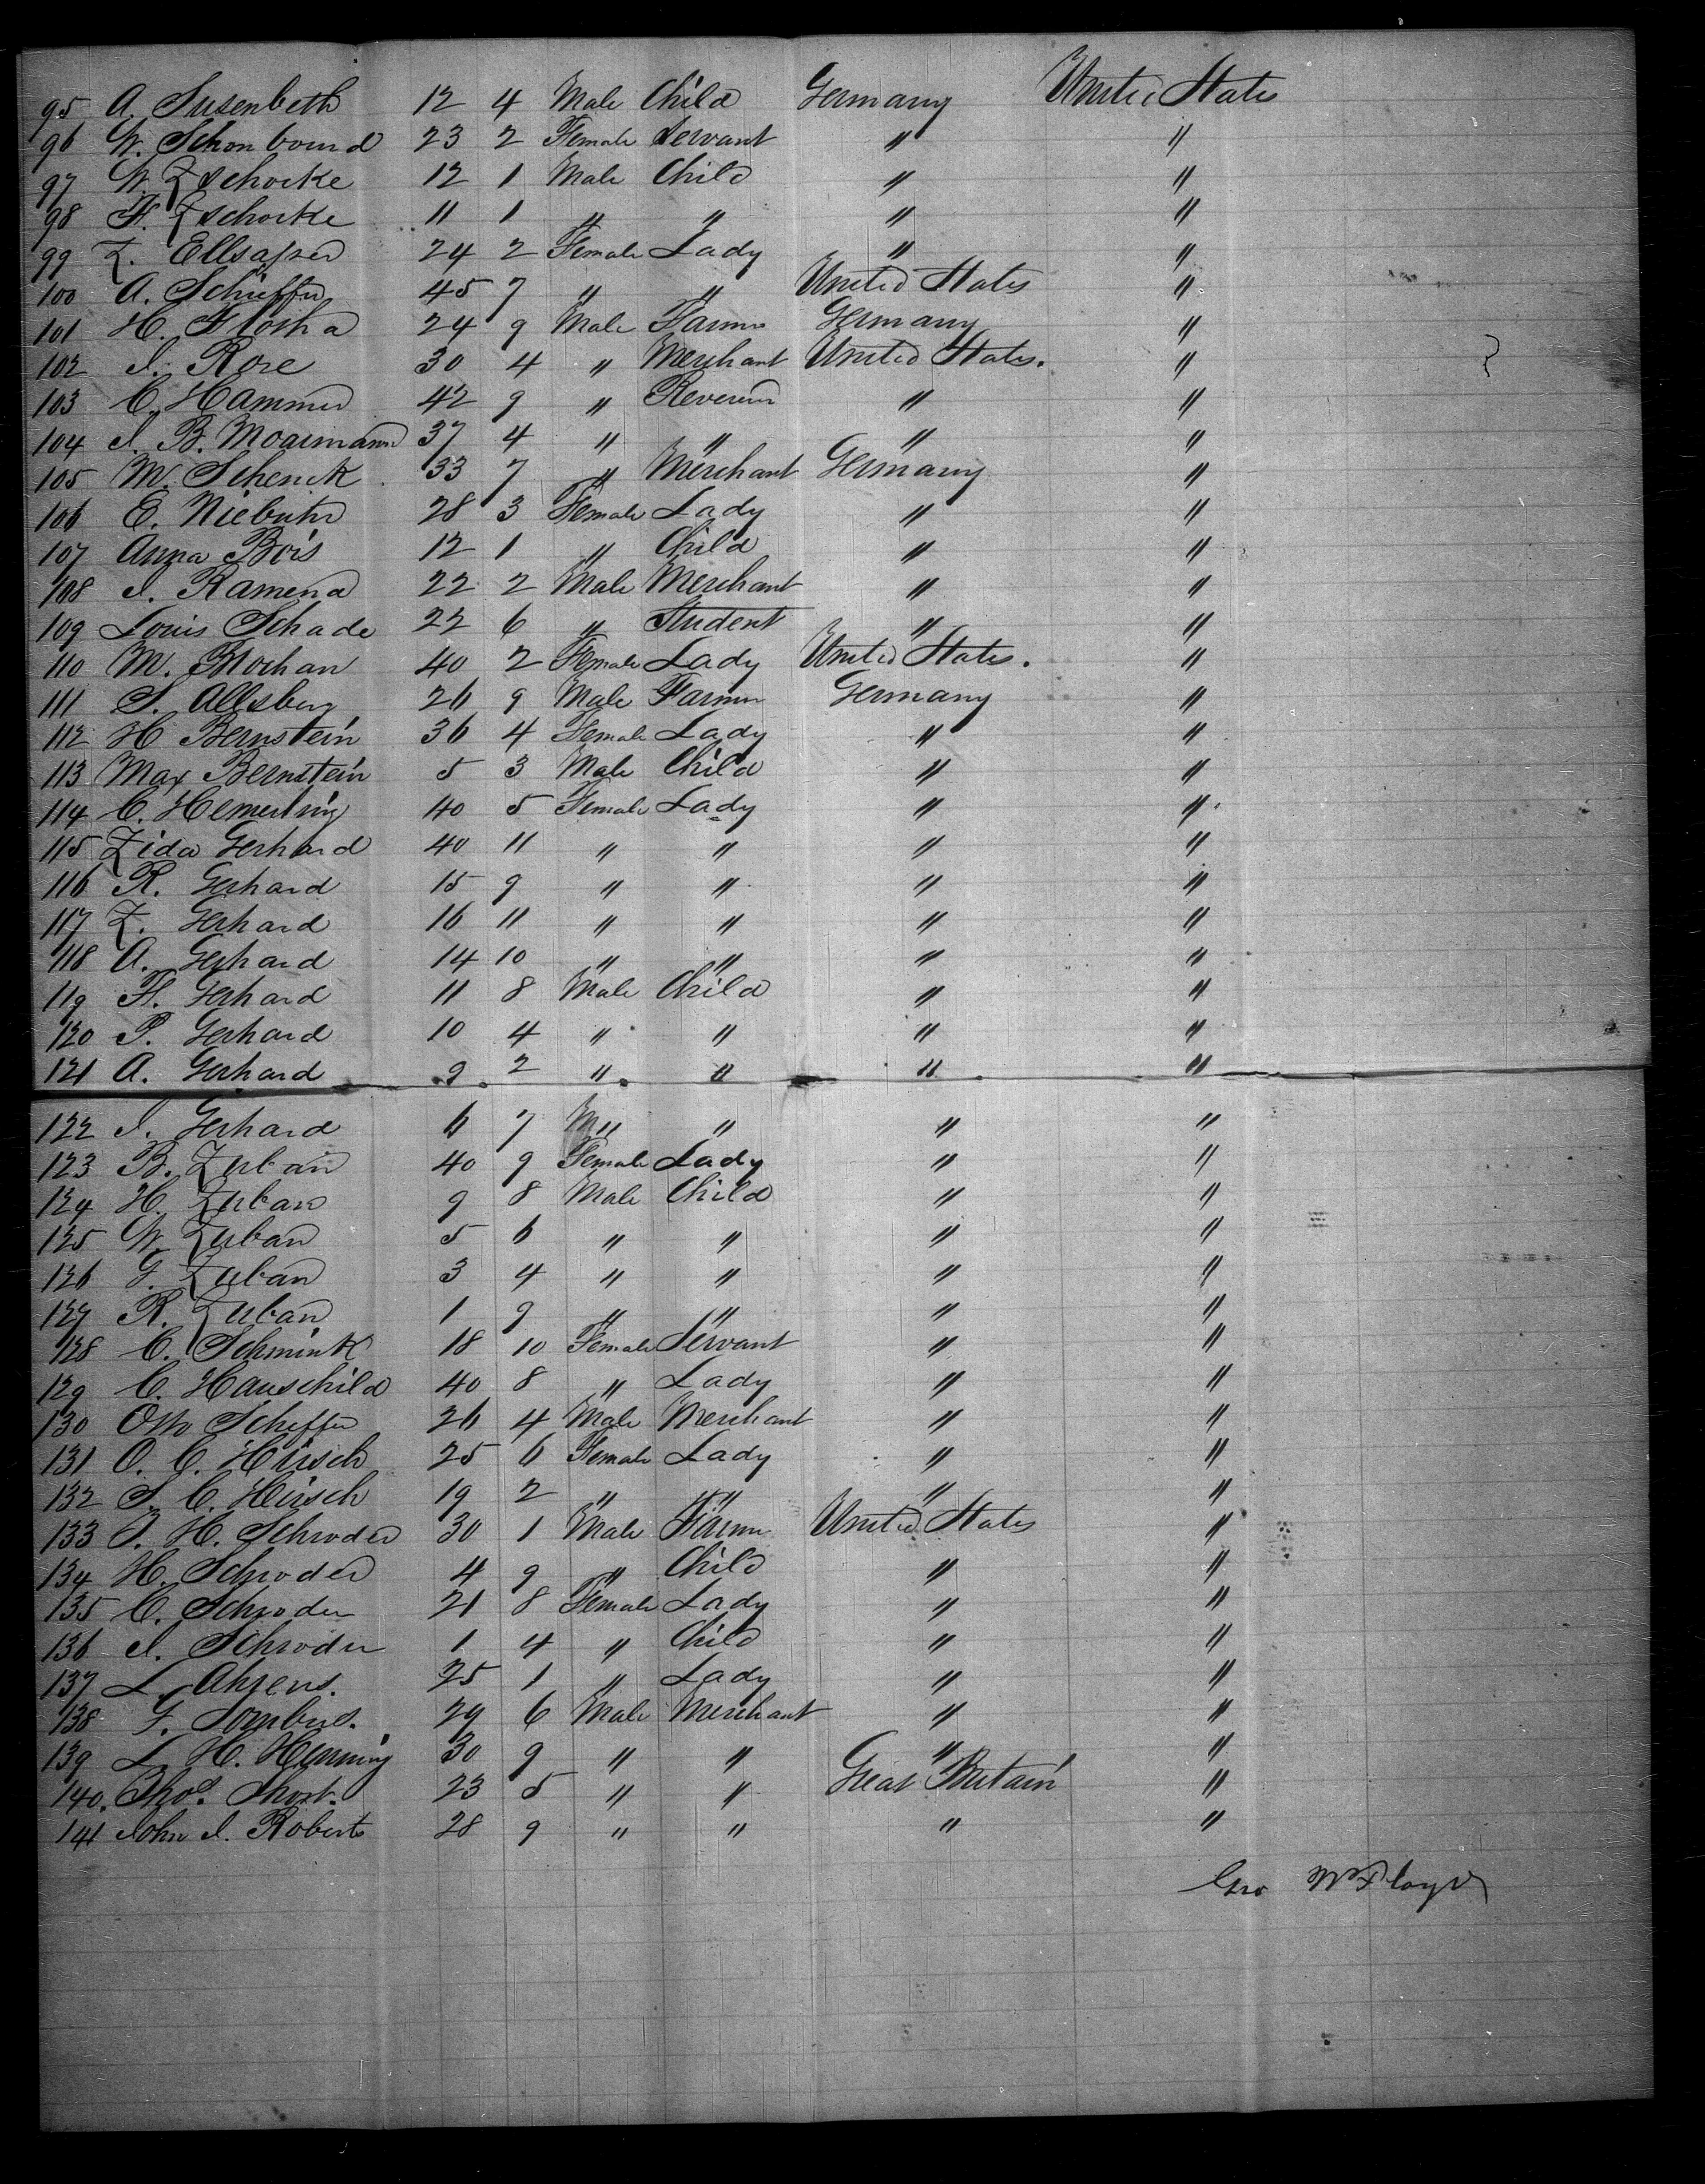 95 A. Susenbeth 12 4 Male Child Germany United States
96 W. Schonbound 23 2 Female Servant " "
97 W. Zschocke 12 1 Male Child " "
98 F. Zschocke 11 1 " " " "
99 Z. Ellsasser 24 2 Female Lady " "
100 A. Schieffer 45 7 " " United States "
101 H. 24 9 Male Farmer Germany "
102 J. Rose 30 4 " Merchant United States. "
103 C. Hammer 42 9 " Reverend " "
104 J. B. Moarmann 37 4 " " " "
105 M. Schenck 33 7 " Merchant Germany "
106 E. Niebuhr 28 3 Female Lady " "
107 Anna Bois 12 1 " Child " "
108 J. Ramena 22 2 Male Merchant " "
109 Louis Schade 22 6 " Student " "
110 M. Blochan 40 2 Female Lady United States. "
111 S. Allsberg 26 9 Male Farmer Germany "
112 H Bernstein 36 4 Female Lady " "
113 Max Bernstein 5 3 Male Child " "
114 C. Hemerling 40 5 Female Lady " "
115 Zida Gerhard 40 11 " " " "
116 R. Gerhard 15 9 " " " "
117 Z. Gerhard 16 11 " " " "
118 A. Gerhard 14 10 " " " "
119 F. Gerhard 11 8 Male Child " "
120 P. Gerhard 10 4 " " " "
121 A. Gerhard 9 2 " " " "
122 J. Gerhard 6 7 " " " "
123 B. Zurban 40 9 Female Lady " "
124 H. Zurban 9 8 Male Child " "
125 W. Zurban 5 6 " " " "
126 G. Zurban 3 4 " " " "
127 R. Zurban 1 9 " " " "
128 C. Schmink 18 10 Female Servant " "
129 C. Hauschild 40 8 " Lady " "
130 Otto Scheffer 26 4 Male Merchant " "
131 O. C. Hirsch 25 6 Female Lady " "
132 S. C. Hirsch 19 2 " " " "
133 J. H. Schroder 30 1 Male Farmer United States "
134 H. Schroder 4 9 " Child " "
135 C. Schroder 21 8 Female Lady " "
136 J. Schroder 1 4 " Child " "
137 L. Ahrens. 25 1 " Lady " "
138 G. Sombus. 29 6 Male Merchant " "
139 L. H. Henning 30 9 " " " "
140. Thos. Short. 23 5 " " Great Britain "
141 John J. Roberts 28 9 " " " "
Geo W Floyd